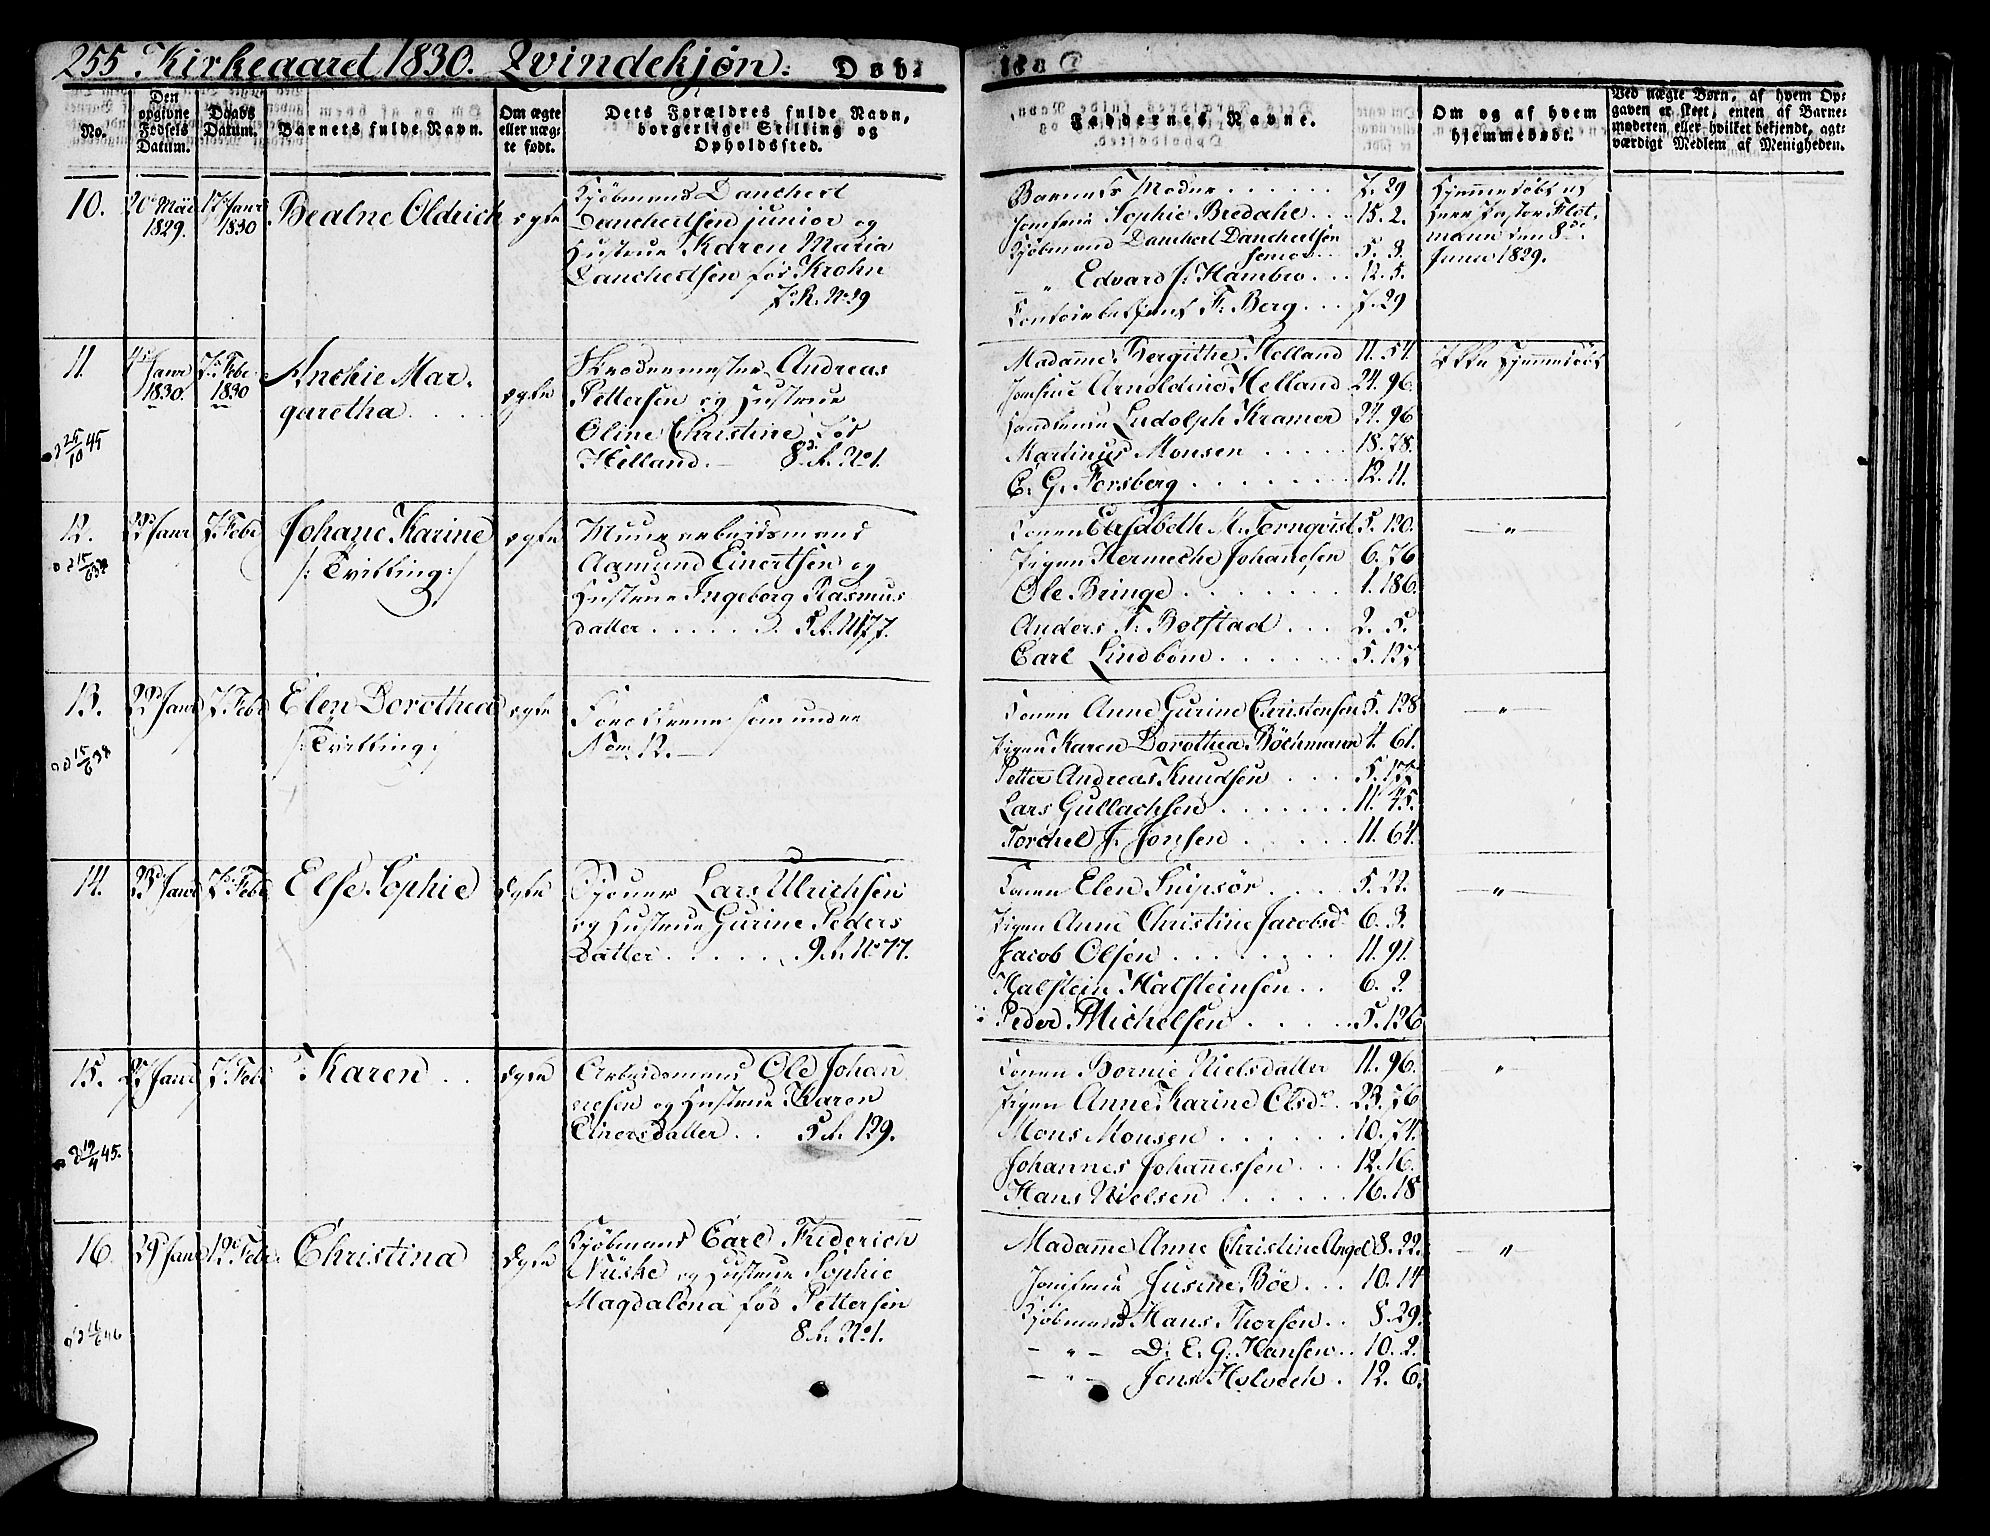 255 Kirkeaaret 1830. Qvindekjøn. Døb-
No.
Den opgivne Fødsels Datum.
Daabs Datum.
Barnets fulde Navn.
Om ægte eller uæg- te født.
Dets Forældres fulde Navn, borgerlige Stilling og Opholdssted.
Faddernes Navne.
Om og af hvem hjemmedøbt.
Ved uægte Børn, af hvem Op- gaven er skeet, enten af Barne- moderen eller hvilket bekjendt, agt- værdigt Medlem af Menigheden.
10.
1829.
17 Janr 1830
Bealne Oldrich
ægte
Kjøbmand Danchert
Danchertsen junior og
Hustrue Karen Maria
Danchertsen fød Krohn
7 R. No 29
Barnets Moder . . . 7. 29
Jomfrue Sophie Bredahl . . 15. 2.
Kjøbmand Danchert Danchertsen
senior . . 5. 3.
— „ Edvard J. Hambro . . . 12. 5.
Contoirbetjent F. Berg . . . 7. 29
Hjemmedøbt af
Herr Pastor Flot-
mann den 8de
Junii 1829.
11.
4 Janr 1830.
7 Febr 1830
Anchie Mar-
garetha . . .
ægte
Skrædermester Andreas
Pettersen og Hustrue
Oline Christine fød
Helland. — 8 R. No 1.
25/10 45
Madamme Bergithe Helland 11. 54.
Jomfrue Arnoldine Helland 24. 96.
Ludolph Kramer 24. 96
Martinus Monsen . . . . 18. 78.
C. G. Forsberg . . . . . 12. 11.
Ikke hjemmedøbt
12.
22 Janr
7 Febr
Johane Karine
/: Tvilling :/
ægte
Muurarbeidsmand
Aamund Einertsen og
Hustrue Ingeborg Rasmus
datter . . . . . 5 R. 177.
15/6 38
Konen Elisabeth M. Tornqvist 5. 120.
Pigen Hermeche Johanesen 6. 76
Ole Bringe . . . . . 1. 186.
Anders T. Bolstad . . . 2. 5.
Carl Lindbom . . . . 5. 127
— „ —
13.
22 Janr
7 Febr
Elen Dorothea
/: Tvilling :/
ægte
Forældrene som under
Nom. 12. —
15/6 38
Konen Anne Gurine Christensen 5. 128
Pigen Karen Dorothea Bøchmann 1. 61.
Petter Andreas Knudsen . . .
Lars Gullachsen . . . . . 11. 45.
Torchel J. Jonsen . . . . 11. 64.
— „ —
14.
23 Janr
7 Febr
Else Sophie
ægte
Lars Ulrichsen
og Hustrue Gurine Peders
Datter . . . . . 9 R. No 77.
Konen Elen Snipsør . . . . 5. 22.
Pigen Anne Christine Jacobsd 6. 3.
Jacob Olsen . . . . . 11. 91.
Halstein Halsteinsen . . 6. 2.
Peder Michelsen . . . . 5. 126
— „ —
15.
27 Janr
7 Febr
Karen . .
ægte
Arbeidsmand Ole Johan
nesen og Hustrue Karen
Einersdatter . . 5 R. 129.
12/4 45.
Konen Bornie Nielsdatter 11. 96.
Pigen Anne Karine Olsdr. 23. 56
Mons Monsen . . . . . 10. 74.
Johannes Johannessen . . . 12. 16.
Hans Nielsen . . . . . 16. 18
— „ —
16.
29 Janr
12 Febr
Christina
ægte
Kjøbmand Carl Friderich
Nüske og Hustrue Sophie
Magdalena fød Pettersen
8 R. No 1.
Madamme Anne Christine Angel 8. 22.
Jomfrue Jusine Bøe . . . 10. 14
Kjøbmand Hans Thorsen . . 8. 29.
— „ — D. E. G. Hansen . . 10. 2.
— „ — Jens Holvech . 12. 6.
— „ —